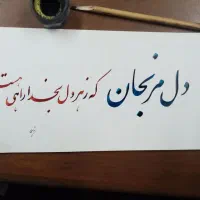 دل مرنجان که ز هر دل بخدا راهی هست